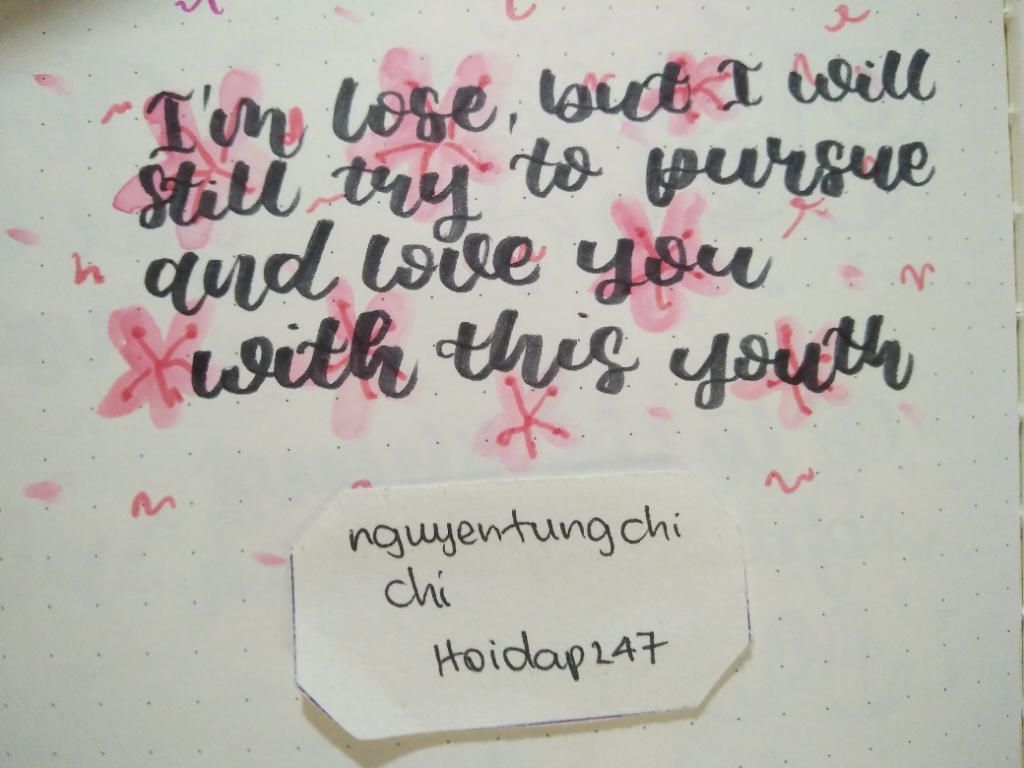 I'm lose, but I will
still try to pursue
and love you
with this youth
nguyentungchi
chi
Hoidap247